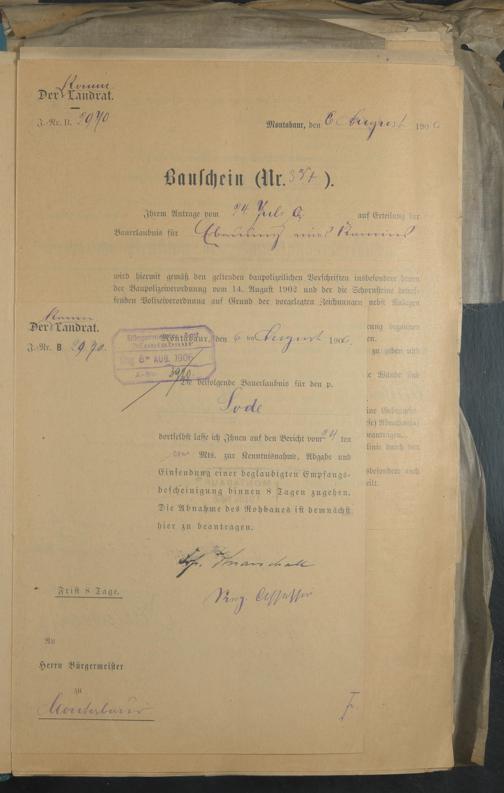 Komm.
Der Landrat.
J.-Nr. B. 2970
Montabaur, den 6 August 1906
Bauschein (Nr. ).
Ihrem Antrage vom 24 Juli 6 auf Erteilung der
Bauerlaubnis für Erbauung eines Kamins
wird hiermit gemäß den geltenden baupolizeilichen Vorschriften insbesondere denen
der Baupolizeiverordnung vom 14. August 1902 und der die Schornsteine betref-
fenden Polizeiverordnung auf Grund der vorgelegten Zeichnungen nebst Anlagen
Komm.
Der Landrat.
J.-Nr. B 2970.
Montabaur, den 6 ten August 1906.
Bürgermeister-Amt
Montabaur
Eing. 8 * AUG. 1906
J.-No. 3920
Die beifolgende Bauerlaubnis für den p.
Lode
dortselbst lasse ich Ihnen auf den Bericht vom 24 ten
Mts. zur Kenntnisnahme, Abgabe und
Einsendung einer beglaubigten Empfangs-
bescheinigung binnen 8 Tagen zugehen.
Die Abnahme des Rohbaues ist demnächst
hier zu beantragen.
Reg. Assessor
Frist 8 Tage.
An
Herrn Bürgermeister
zu
Montabaur